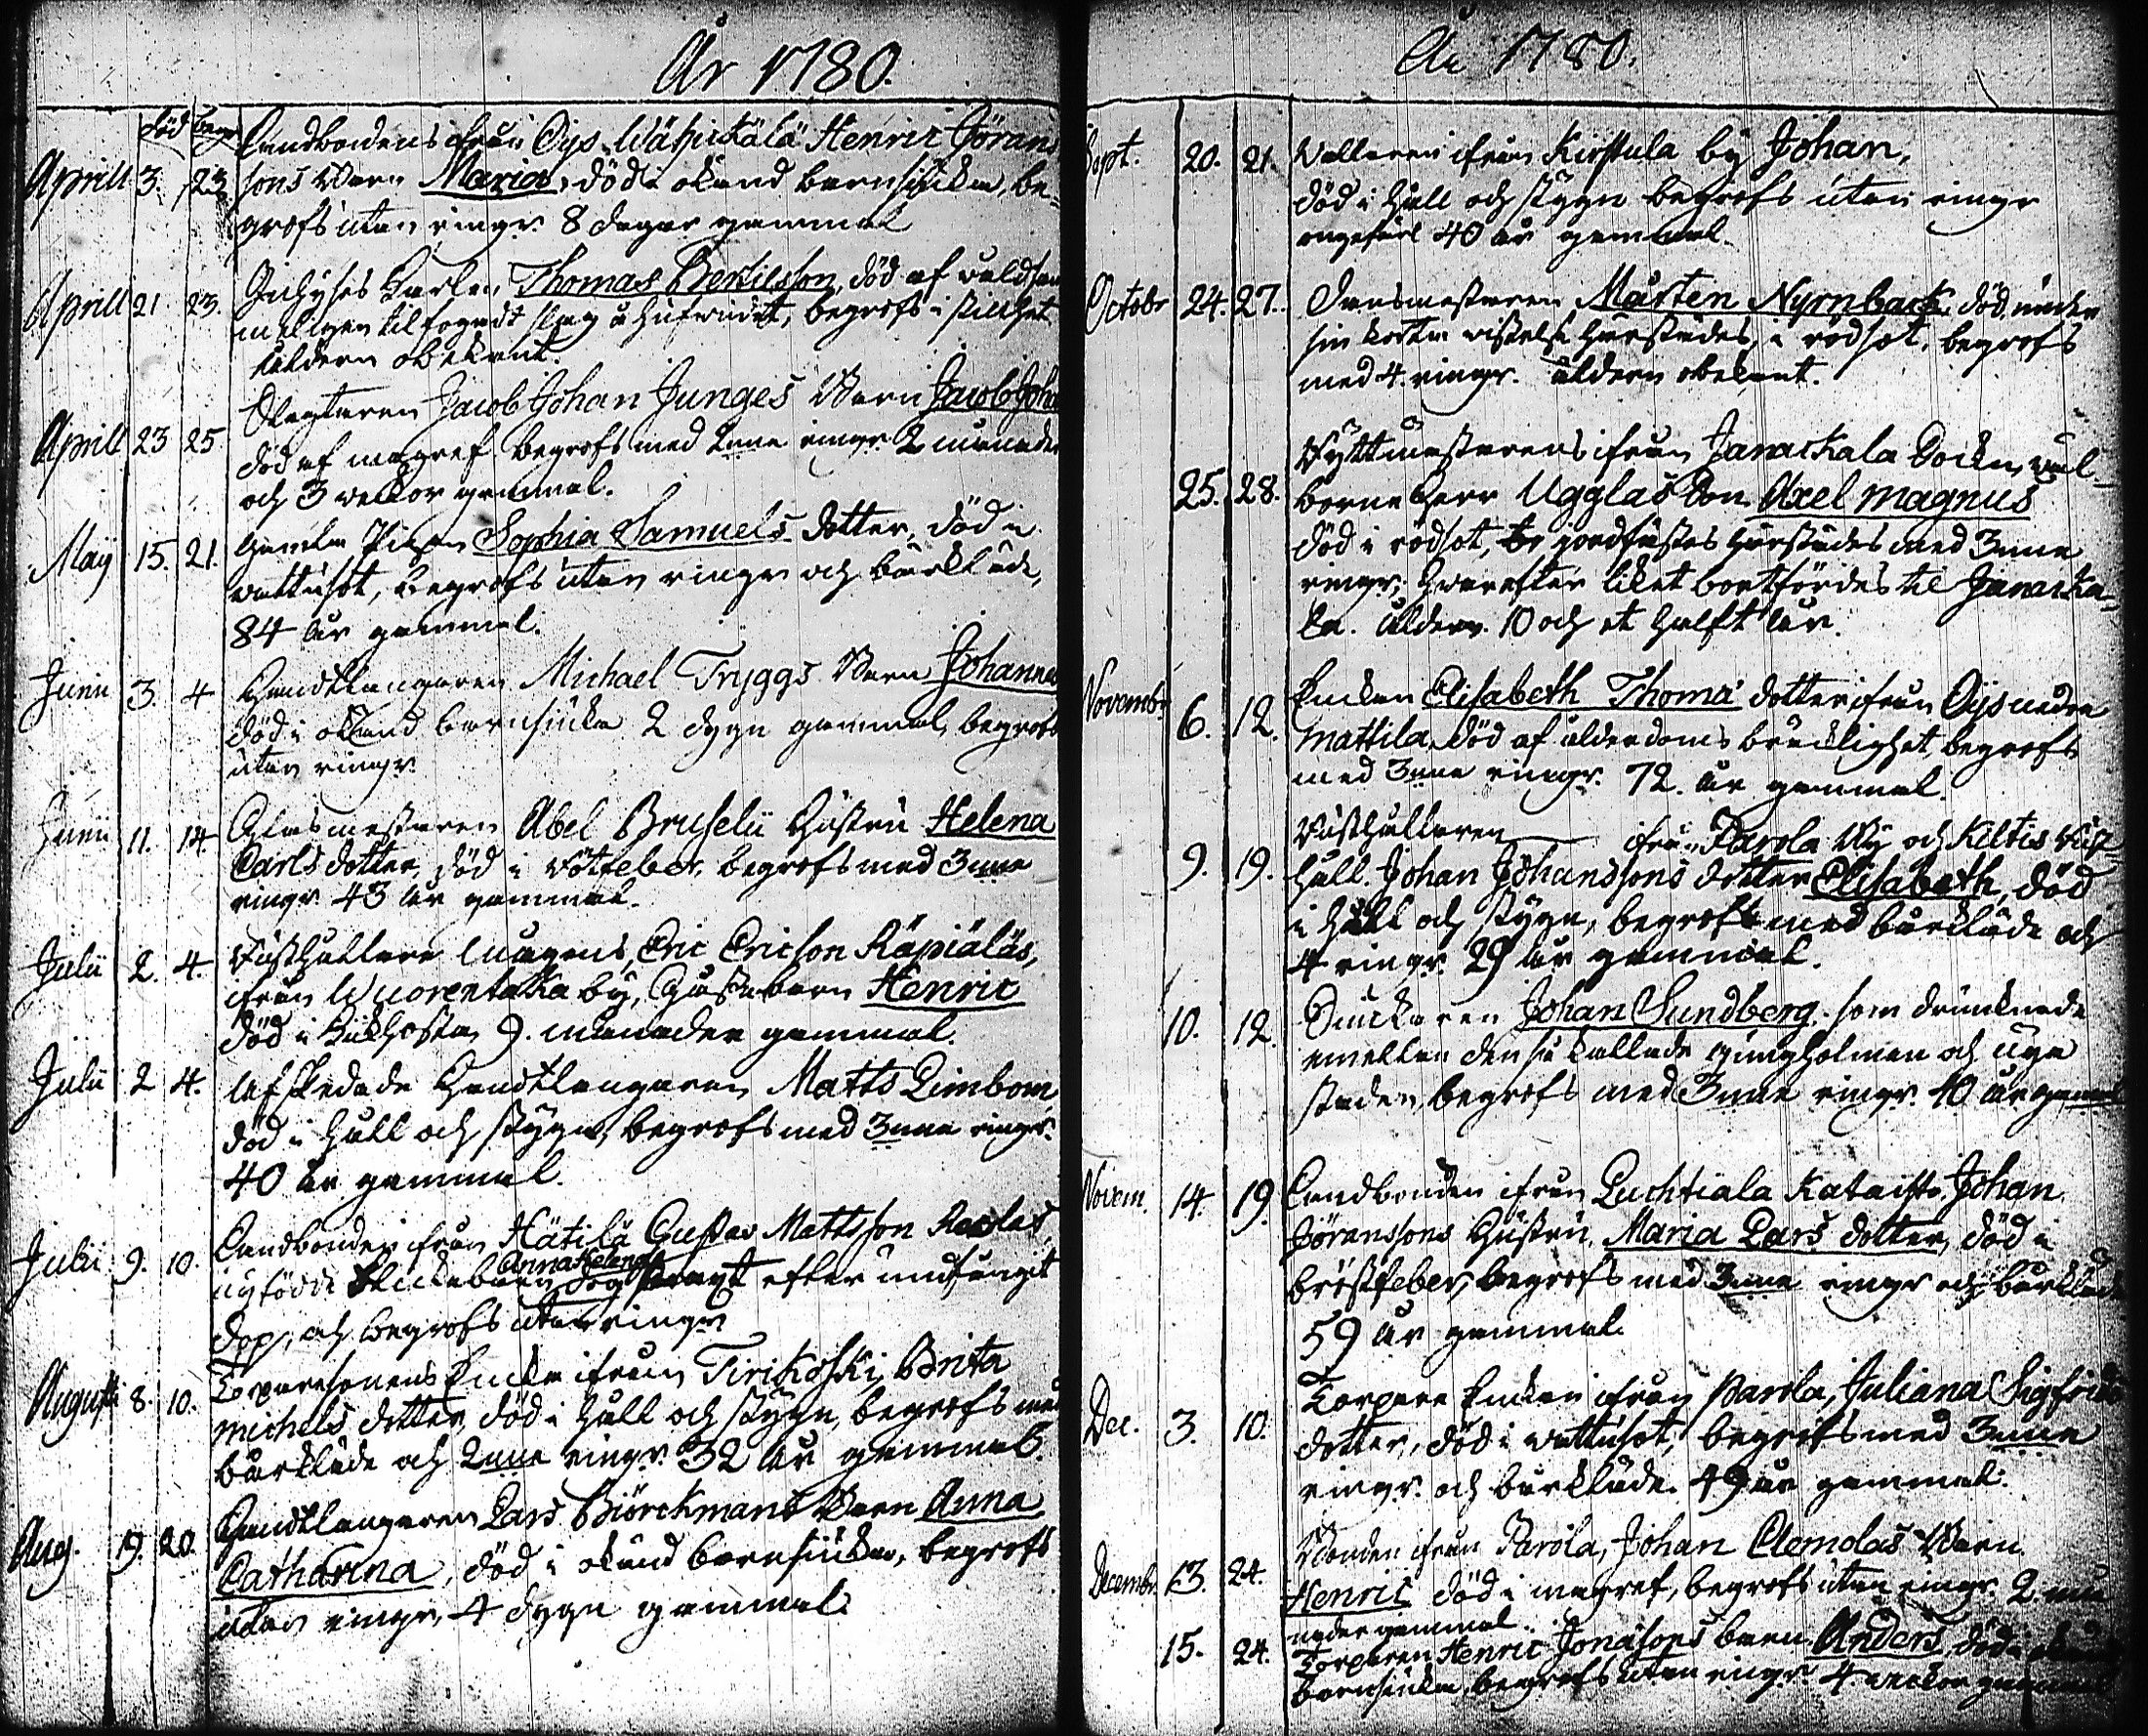 År 1780.
död begr
Landbondens ifrån Ojs Wähickälä Henric Görans
Aprill 3. 23 sons Barn Maria, död i okänd barnsjuka, be-
grofs utan ringn. 8 dagar gammal
Inhyses Karlen Thomas Bertilsson, död af våldsam
Aprill 21 23. meligen tilfogadt slag å hufwudet, begrofs i stillhet
ålderen obekant.
Jacob Johan Junges Barn Jacob Joha
Aprill 23 25 död af begrofs med 2nne ringn. 2 månader
och 3 wekor gammal.
Gamla Pigan Sophia Samuels dotter, död i
May 15. 21. wattusot, begrofs utan ringn och bårkläde,
84 år gammal.
Junii 3. 4 Handtlangaren Michael Tryggs Barn Johannes
död i okänd barnsjuka 2 dygn gammal, begrofs
utan ringn.
Junii 11. 14 Glasmestaren Abel Bruselii Hustru Helena
Carls dotter, död i rötfeber, begrofs med 3nne
ringn. 43 år gammal.
Julii 2. 4. Rusthållare mågens, Eric Ericson Räpiäläs,
ifrån Wuorentaka by, Gosse barn Henric
död i Kikhosta, 9. månader gammal.
Julii 2 4. Afskedade Handtlangaren Matts Limbom,
död i håll och stygn, begrofs med 3nne ringn.
40 år gammal.
Julii 9. 10. Landbonden ifrån Hätilä Gustav Mattsson
Anna Helena
nyfödde flickebarn dog straxt efter undfångit
dop, och begrofs utan ringn
Torparesonens Encka ifrån Tirikoski, Brita
Augusti 8. 10. Michels dotter, död i håll och stygn, begrofs med
bårkläde och 2nne ringn. 32 år gammal.
Handtlangaren Lars Biörckmans Barn Anna
Aug. 19. 20. Catharina, död i okänd barnsjuka, begrofs
utan ringn, 4 dygn gammal.
År 1780.
Sept. 20. 21. Wallaren ifrån Kirstula by Johan,
död i håll och stygn begrofs utan ringn
ongefärl 40 år gammal.
Octobr 24. 27. Mårten Nyrnback, död under
sin korta wistelse härstädes, i rödsot, begrofs
med 4. ringn. ålderen obekant.
Ryttmästarens ifrån Janackala Socken, wäl-
25. 28. borne Herr Ugglas Son Axel Magnus
död i rödsot, jordfästes härstädes med 3nne
ringn; hwarefter liket bortfördes til Janacka-
la. ålderen. 10 och et halft år.
Novembr Enckan Elisabeth Thomæ dotter ifrån Ojs nedre
6. 12. Mattila, död af ålderdoms bräcklighet, begrofs
med 3nne ringn. 72. år gammal.
Rusthållaren ifrån Parola By och Keltis Rust-
9. 19. håll. Johan Johanssons dotter Elisabeth, död
i håll och stygn, begrofs med bårkläde och
4 ringn. 29 år gammal.
10. 12. Johan Sundberg. som drunknade
emellan den så kallade och nya
staden, begrofs med 3nne ringn. 40 år gammal
Novem. 14. 19. Landbonden ifrån Luchtiala Kataisto, Johan
Jöranssons Hustru, Maria Lars dotter, död i
bröstfeber, begrofs med 3nne ringn och bårkläde
59 år gammal.
Torpare Enckan ifrån Parola, Juliana Sigfrids
Dec. 3. 10. dotter, död i wattusot, begrofs med 3nne
ringn. och bårkläde. 49 år gammal.
Bonden ifrån Parola, Johan Clemolas Barn
Decembr. 13. 24. Henric död i, begrofs utan ringn. 2. må
nader gammal.
15. 24. Torparen Henric Jonasons barn Anders, död i okänd
barnsjuka, begrofs utan ringn. 4. weckor gammal